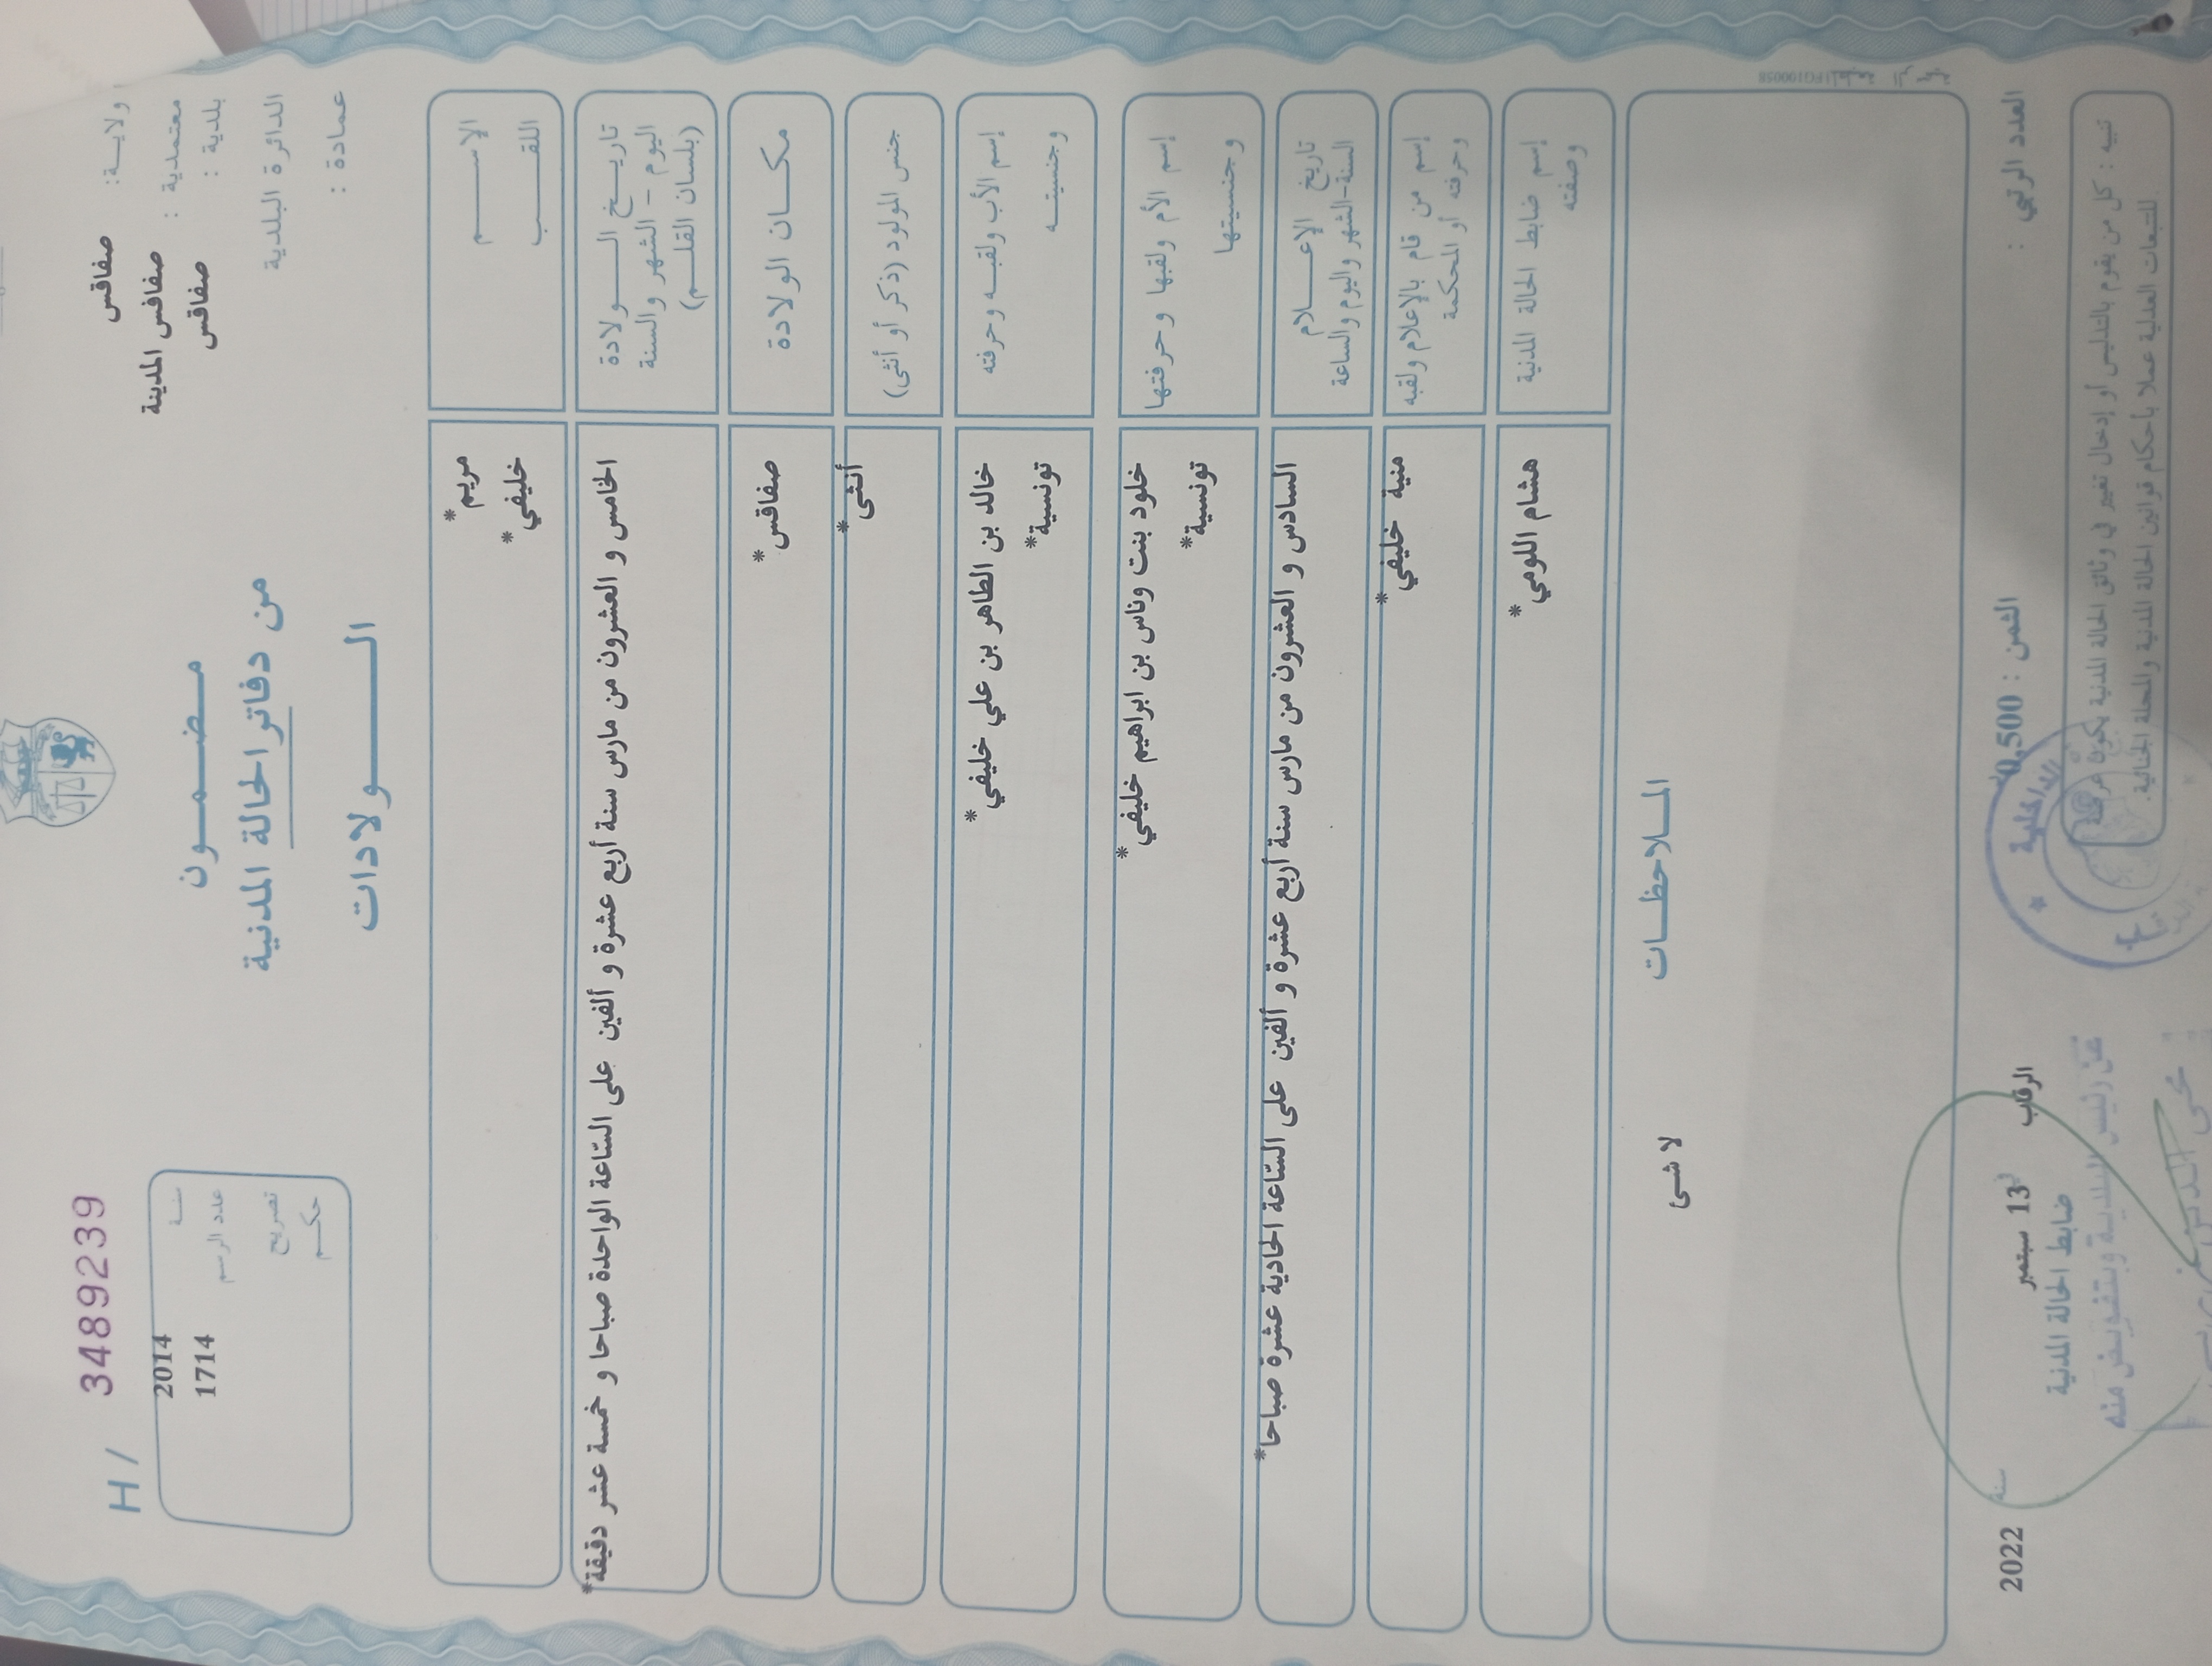 ولايـــة: صفاقس
معتمدية : صفاقس المدينة
بلدية : صفاقس
الدائرة البلدية
عمادة :
H / 3489239
سنـــة 2014
عدد الرسم 1714
تصريح
حكـــم
مـضـمـــون
من دفاتر الحالة المدنية
الـــولادات
الإســـــم مريم*
اللقـــــب خليفي*
تاريـــخ الـــــولادة
اليوم - الشهر والسنة
(بلسان القلـــم)
الخامس و العشرون من مارس سنة أربع عشرة و ألفين على السّاعة الواحدة صباحا و خمسة عشر دقيقة*
مكـــان الولادة صفاقس*
جنس المولود (ذكر أو أنثى) أنثى*
إسم الأب ولقبـــه وحرفته خالد بن الطاهر بن علي خليفي*
وجنسيتـــه تونسية*
إسم الأم ولقبها وحرفتها خلود بنت وناس بن ابراهيم خليفي*
وجنسيتها تونسية*
تاريخ الإعـــــلام
السنة-الشهر واليوم والساعة
السادس و العشرون من مارس سنة أربع عشرة و ألفين على السّاعة الحادية عشرة صباحا*
إسم من قام بالإعلام ولقبه
وحرفته أو المحكمة
منية خليفي*
إسم ضابط الحالة المدنية
وصفته
هشام اللومي*
المـــلاحظـــات
لا شئ
العدد الرتبي :
الثمن : 0,500
الرقاب في 13 سبتمبر سنة 2022
ضابط الحالة المدنية
عن رئيس البلدية وبتفويض منه
تنبيه : كل من يقوم بالتدليس أو إدخال تغيير في وثائق الحالة المدنية يكون عرضة
للتتبعات العدلية عملا بأحكام قوانين الحالة المدنية والمجلة الجنائية.